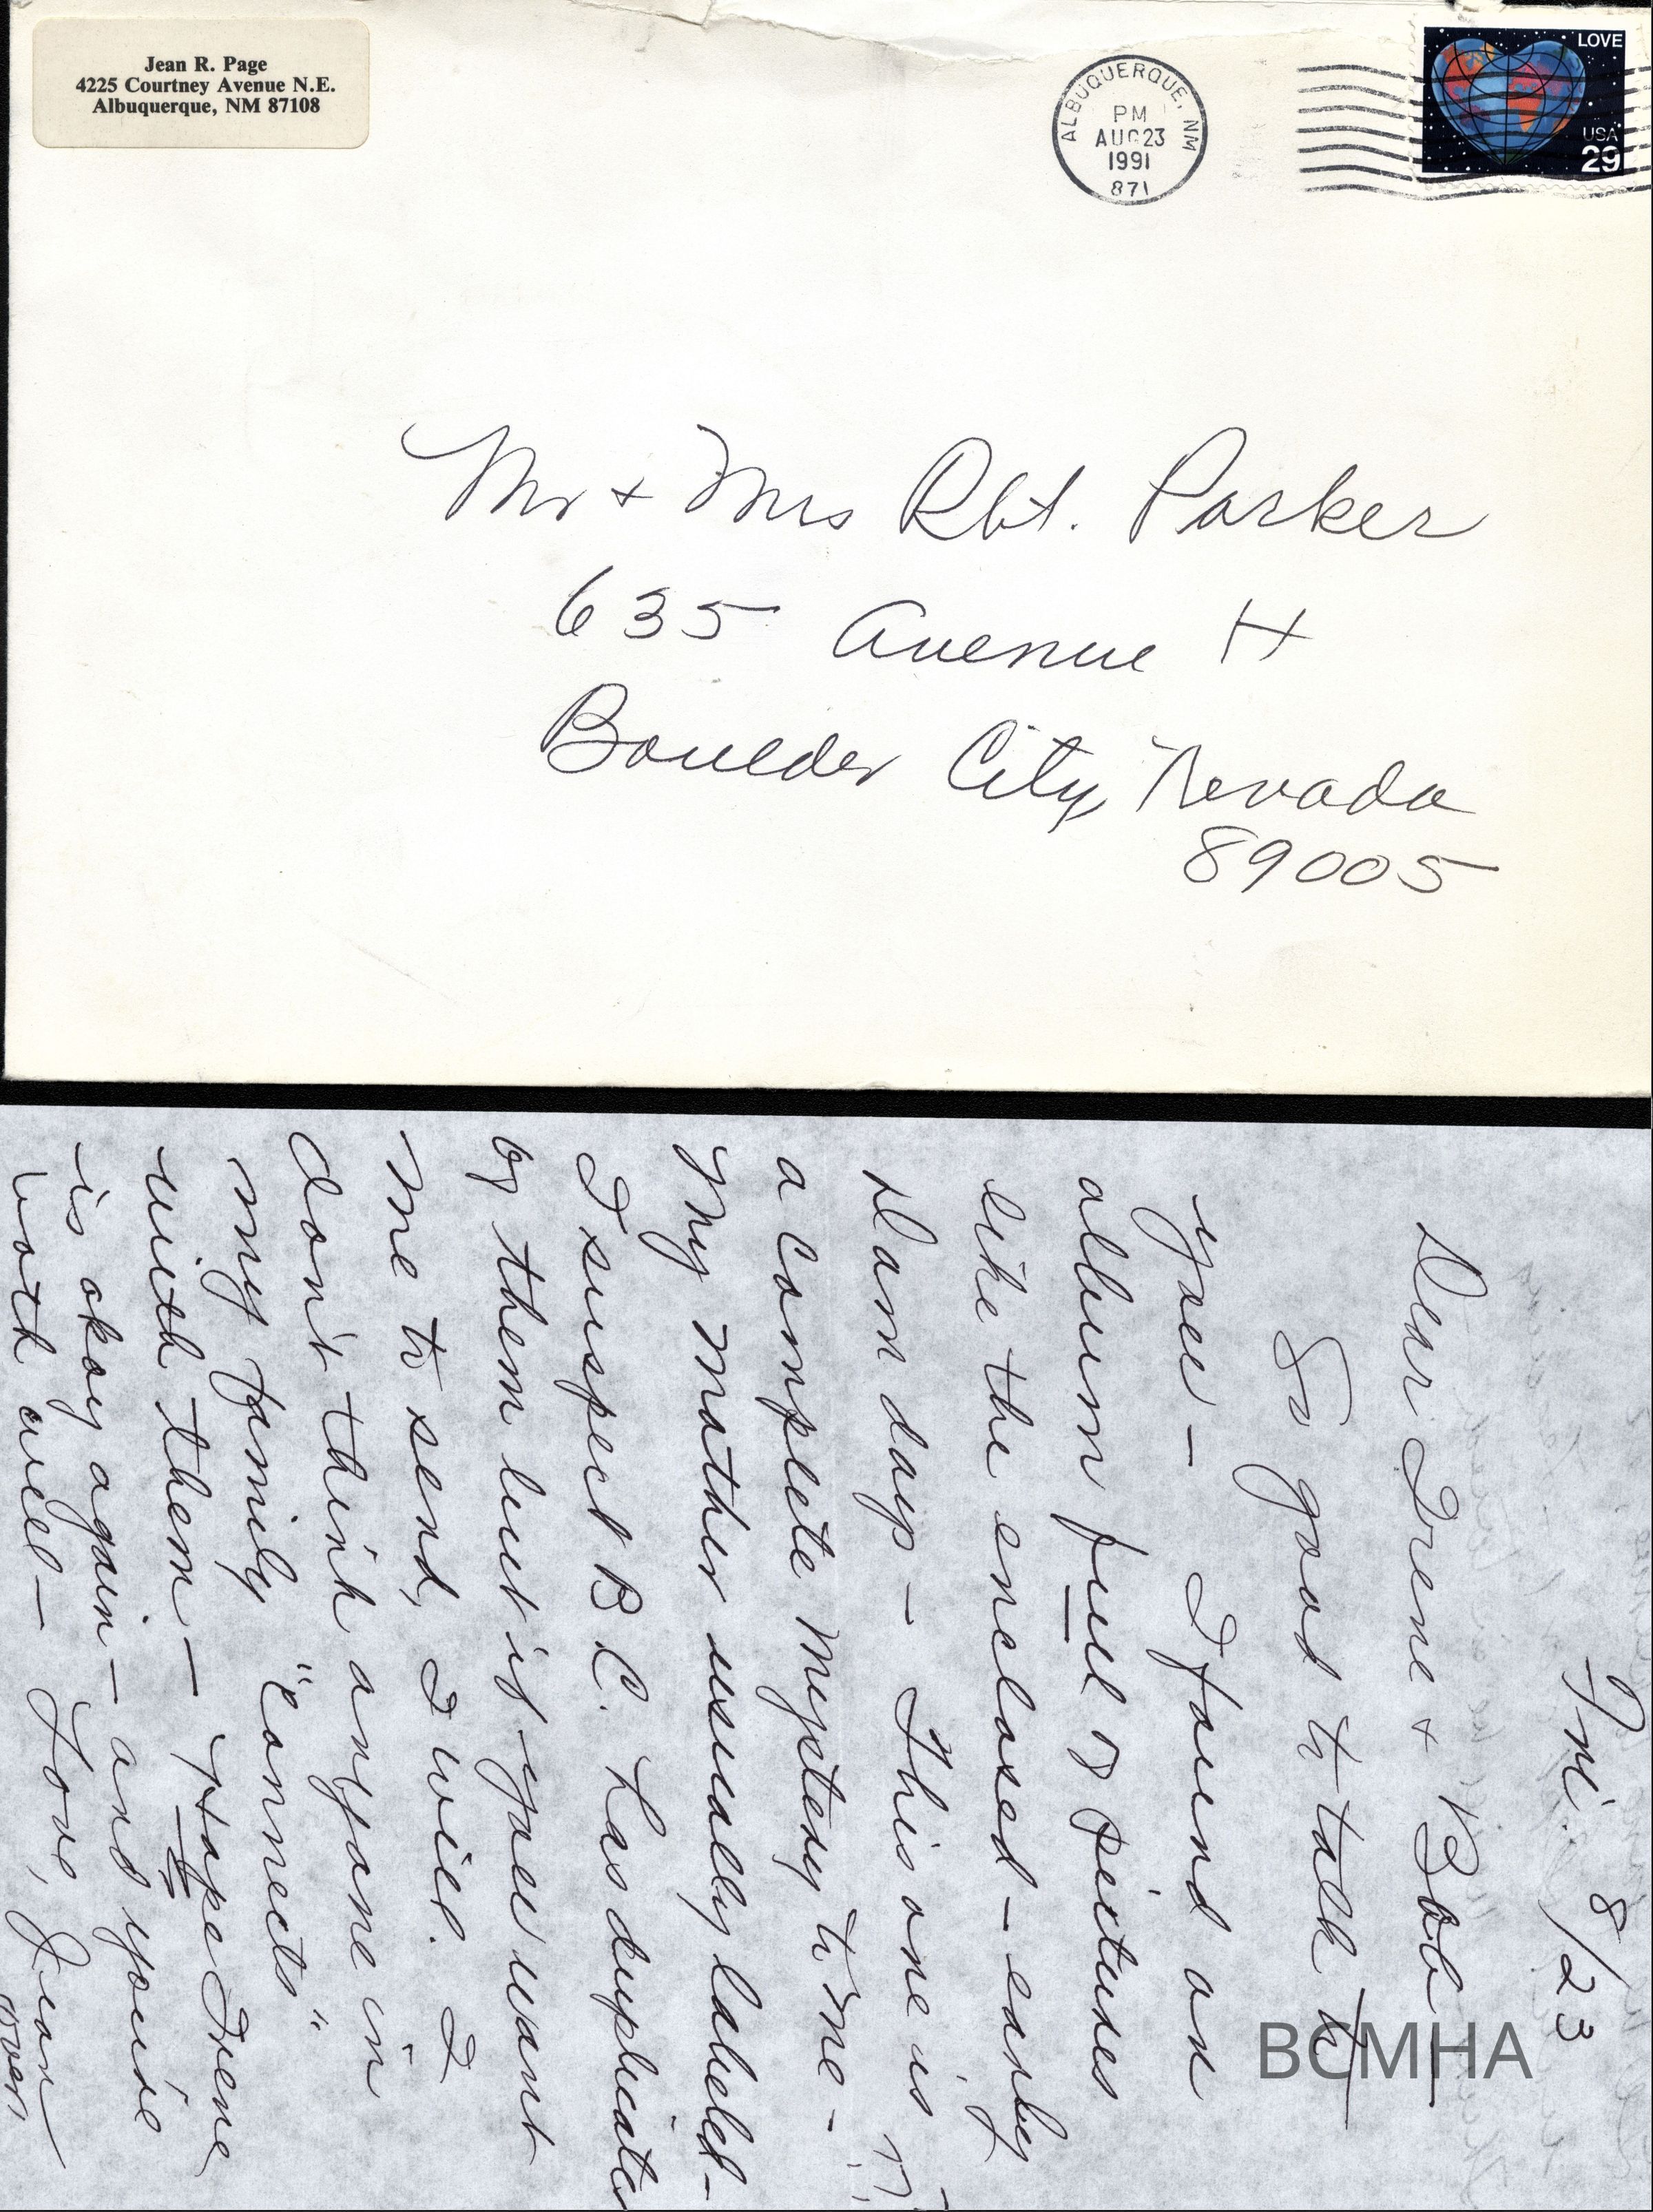 Jean R. Page
4225 Courtney Avenue N.E.
Albuquerque, NM 87108
ALBUQUERQUE, NM
PM
AUG 23
1991
871
LOVE
USA
29
Mr + Mrs Rbt. Parker
635 Avenue H
Boulder City, Nevada
89005
Fri. 8/23
Dear Irene + Bob
So good to talk to
you - I found an
album full of pictures
like the enclosed - early
Dam days - This one is
a complete mystery to me -
My mother usually labeled -
I suspect B.C. has duplicates
of them but if you want
me to send, I will. I
don't think anyone in
my family "connects"
with them - Hope Irene
is okay again - and you're
both well - Love, Jean
over
BCMHA